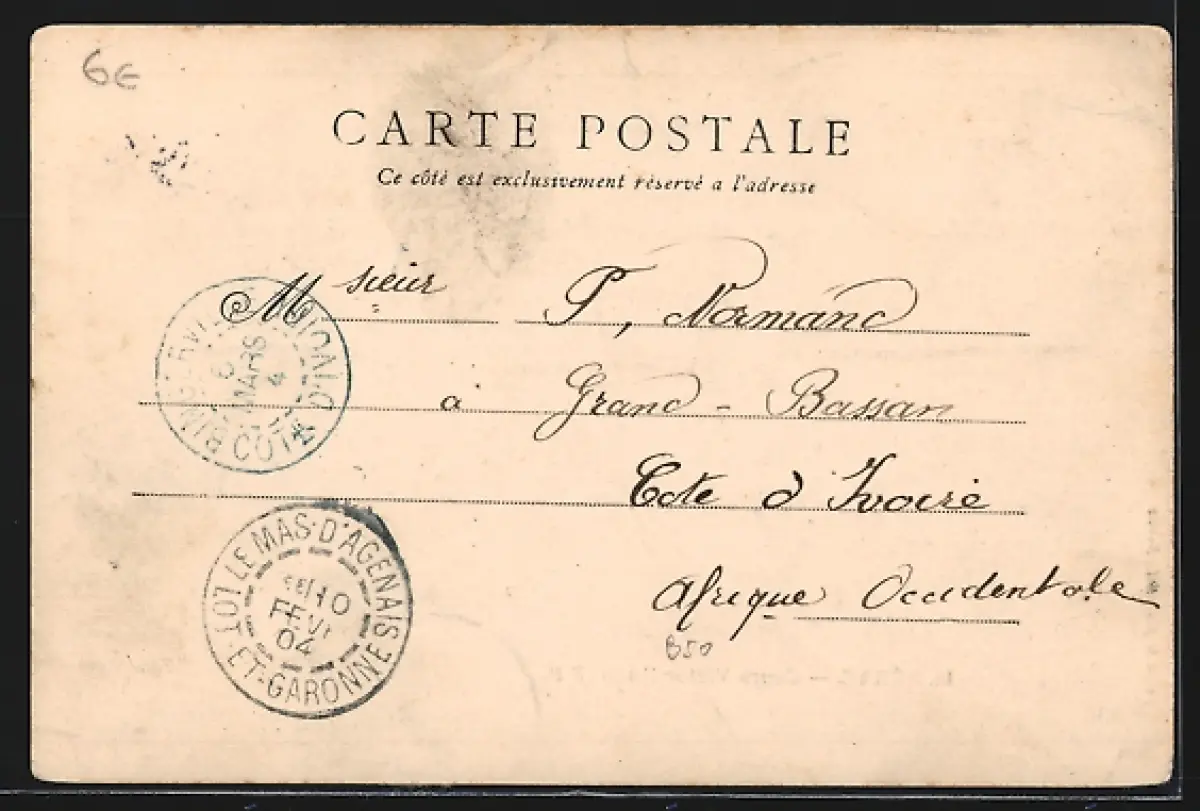 6€
CARTE POSTALE
Ce côté est exclusivement réservé a l'adresse
Msieur P, Normand
à Grand-Bassam
Cote d'Ivoire
Afrique Occidentale
B50
BINGERVILLE
COTE D'IVOIRE
6
MARS
4
LE MAS-D'AGENAIS
LOT-ET-GARONNE
10
FEVR
04